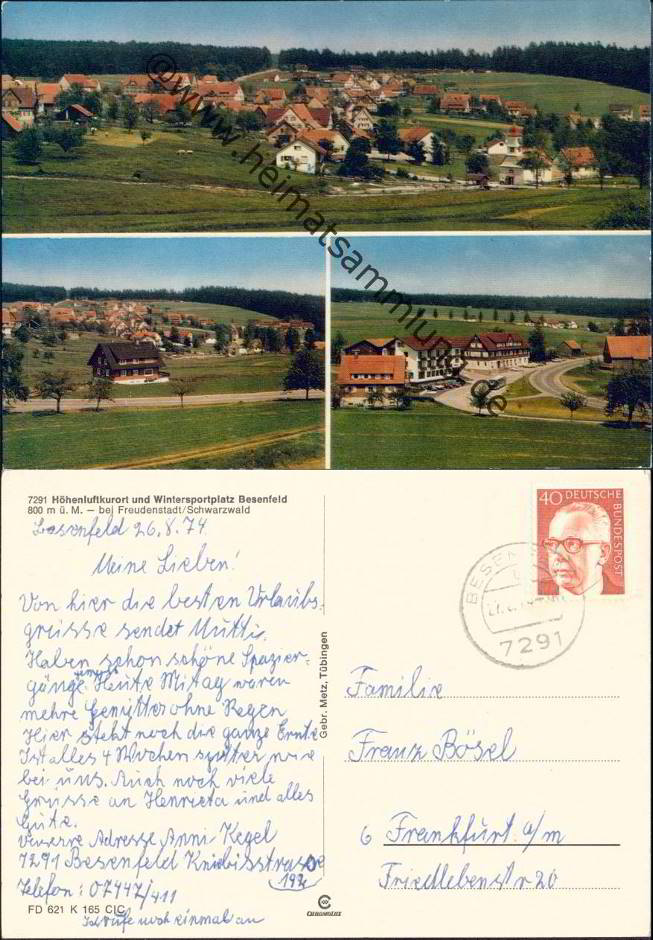 © www.heimatsammlung.de
7291 Höhenluftkurort und Wintersportplatz Besenfeld
800 m ü. M. – bei Freudenstadt/Schwarzwald
Besenfeld 26.8.74
Meine Lieben!
Von hier die besten Urlaubs-
grüsse sendet Mutti.
Haben schon schöne Spazier-
gänge gemacht
Heute Mitag waren
mehre Gewitter ohne Regen
Hier steht noch die ganze Ernte
Ist alles 4 Wochen später wie
bei uns. Auch noch viele
Grüsse an Henrieta und alles
Gute.
unsere Adresse Anni Kegel
7291 Besenfeld Kniebisstrasse
(192)
Telefon: 07447/411
Ich rufe noch einmal an
FD 621 K 165 C|C
Gebr. Metz, Tübingen
CHROMOLUX
40 DEUTSCHE
BUNDESPOST
BESEN
7291
Familie
Franz Bösel
6 Frankfurt a/m
Friedlebenstr 20